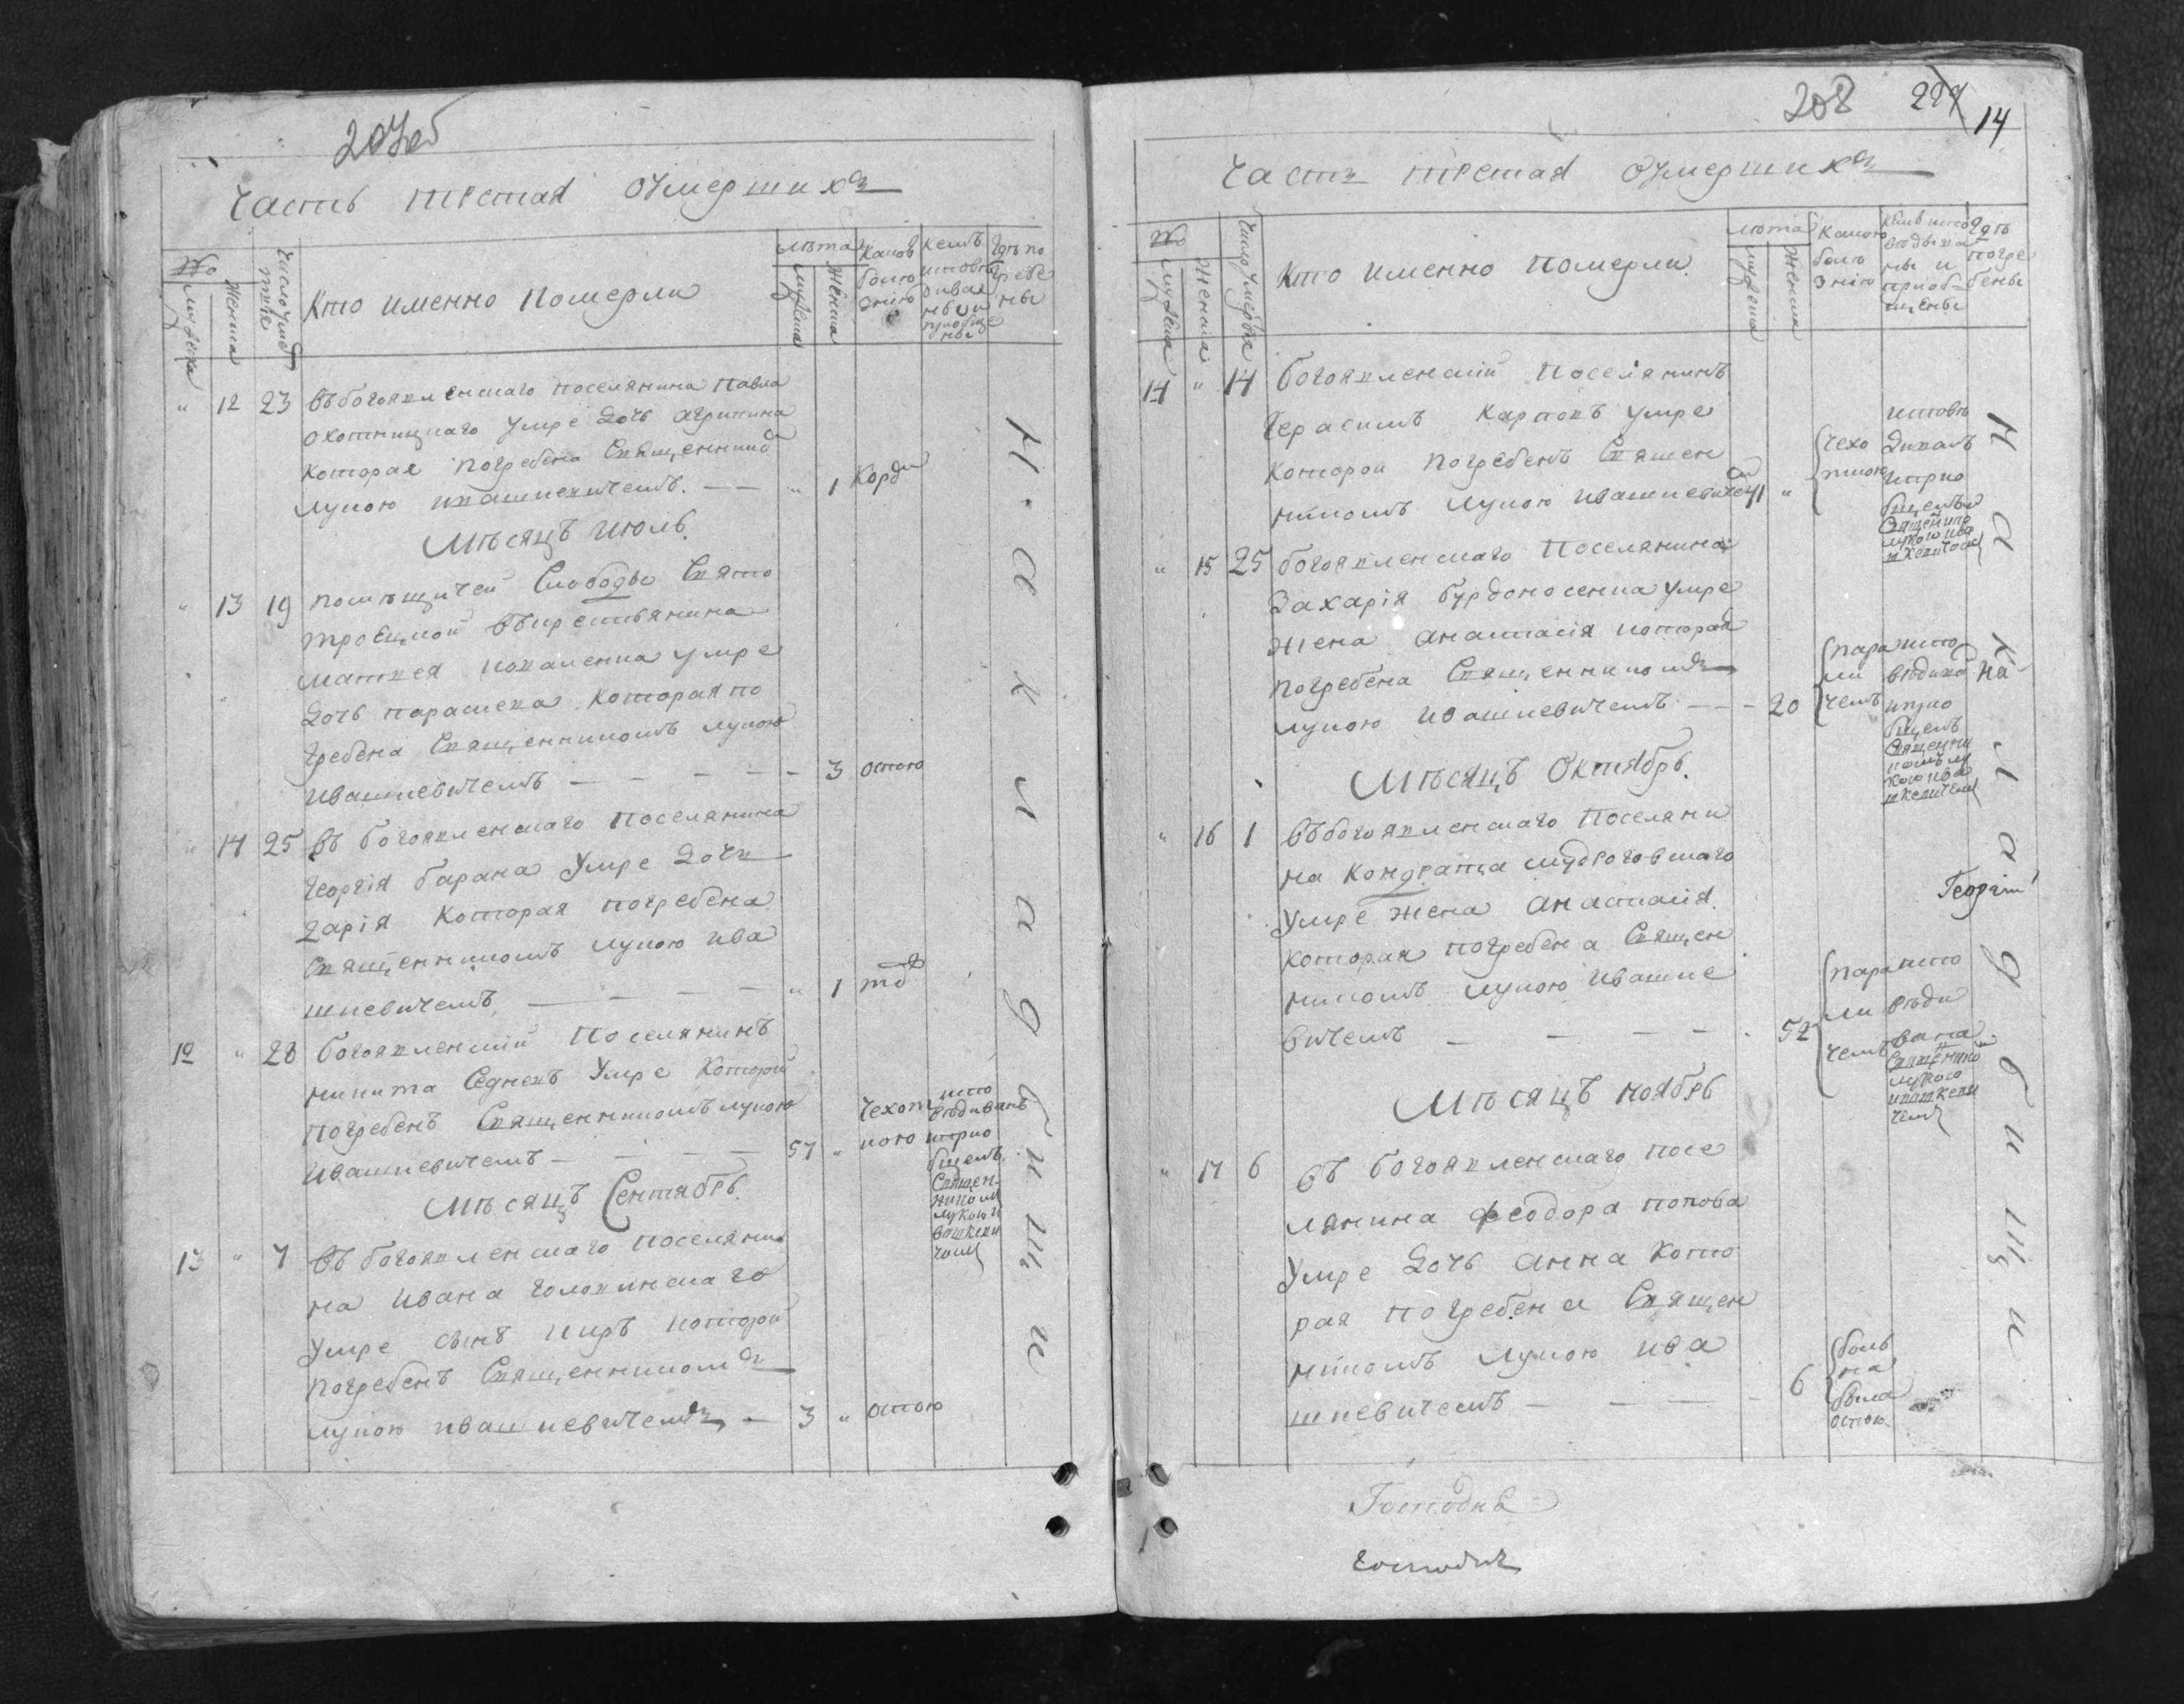 207об
Часть третая оумершихъ
№ Число умерш Кто именно померли Лѣта Какою болезнію Кемъ исповѣдываны и приобщены Гдѣ погребены
мужеска женска мужеска женска
" 12 23 въ богоявленскаго поселянина Павла
охотницкаго умре дочь агрипина
которая погребена Священникомъ
Лукою ивашкевичемъ. — — " 1 Корд
Мѣсяцъ июль.
" 13 19 помѣщичей Слободы Свято
троецкой въ крестьянина
матвея коваленка умре
дочь параскева которая по
гребена Священникомъ лукою
ивашкевичемъ — — — — 3 оспою
" 14 25 въ богоявленскаго поселянина
георгія барана умре дочь
дарія которая погребена
Священникомъ лукою ива
шкевичемъ, — — — — " 1 то
12 " 28 богоявленскій поселянинъ
никита Седневъ умре которой
погребенъ Священникомъ лукою
ивашкевичемъ — — — — 57 "
чехоткою
исповѣдыванъ
и прио
бщенъ
Священ-
никомъ
лукою и
вашкеви
чемъ
Мѣсяцъ Сентябрь.
13 " 7 въ богоявленскаго поселяни
на ивана головинскаго
умре сынъ киръ которой
погребенъ Священникомъ
лукою ивашкевичемъ, — 3 " оспою
На кладбищи
208 14
Часть третая оумершихъ
№ Число умерш Кто именно померли. лѣта Какою болезнію Кемъ исповѣдываны и приобщены гдѣ погребены
мужеска женска мужеска женска
14 " 14 богоявленскій поселянинъ
герасимъ карповъ умре
которой погребенъ Священ
никомъ лукою ивашкевичемъ 41 "
чехоткою
исповѣ
дыванъ
и прио
бщенъ
Священико
лукою ива
шкевичемъ
" 15 25 богоявленскаго поселянина
Захарія бурдоносенка умре
жена анастасія которая
погребена Священникомъ
лукою ивашкевичемъ — — — 20
параличемъ
испо
вѣдана
и прио
бщенъ
Священни
комъ лу
кою ива
шкевичемъ
Мѣсяцъ Октябрь.
" 16 1 въ богоявленскаго поселяни
на кондрата
умре жена анастасія.
которая погребена Священ
никомъ лукою ивашке
вичемъ — — — — 52
параличемъ
испо
вѣды
вана
Священико
лукою
ивашкеви
чемъ
Георгіи
Мѣсяцъ ноябрь
" 17 6 въ богоявленскаго посе
лянина феодора попова
умре дочь анна кото
рая погребена Священ
никомъ лукою ива
шкевичемъ — — — — 6
боль
на
была
оспою
На кладбищи